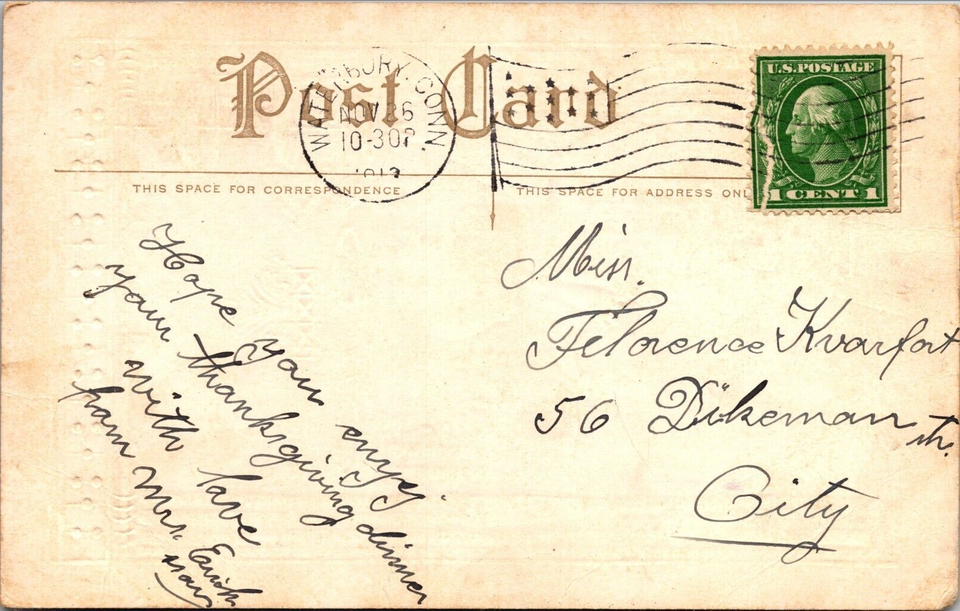 Post Card
WATERBURY, CONN.
NOV 26
10-30P
1913
U.S. POSTAGE
1 CENT 1
THIS SPACE FOR CORRESPONDENCE
THIS SPACE FOR ADDRESS ONL
Hope you enjoy
your thanksgiving dinner
with love
from Mrs.
Miss.
Florence Kvarfort
56 Dikeman st.
City